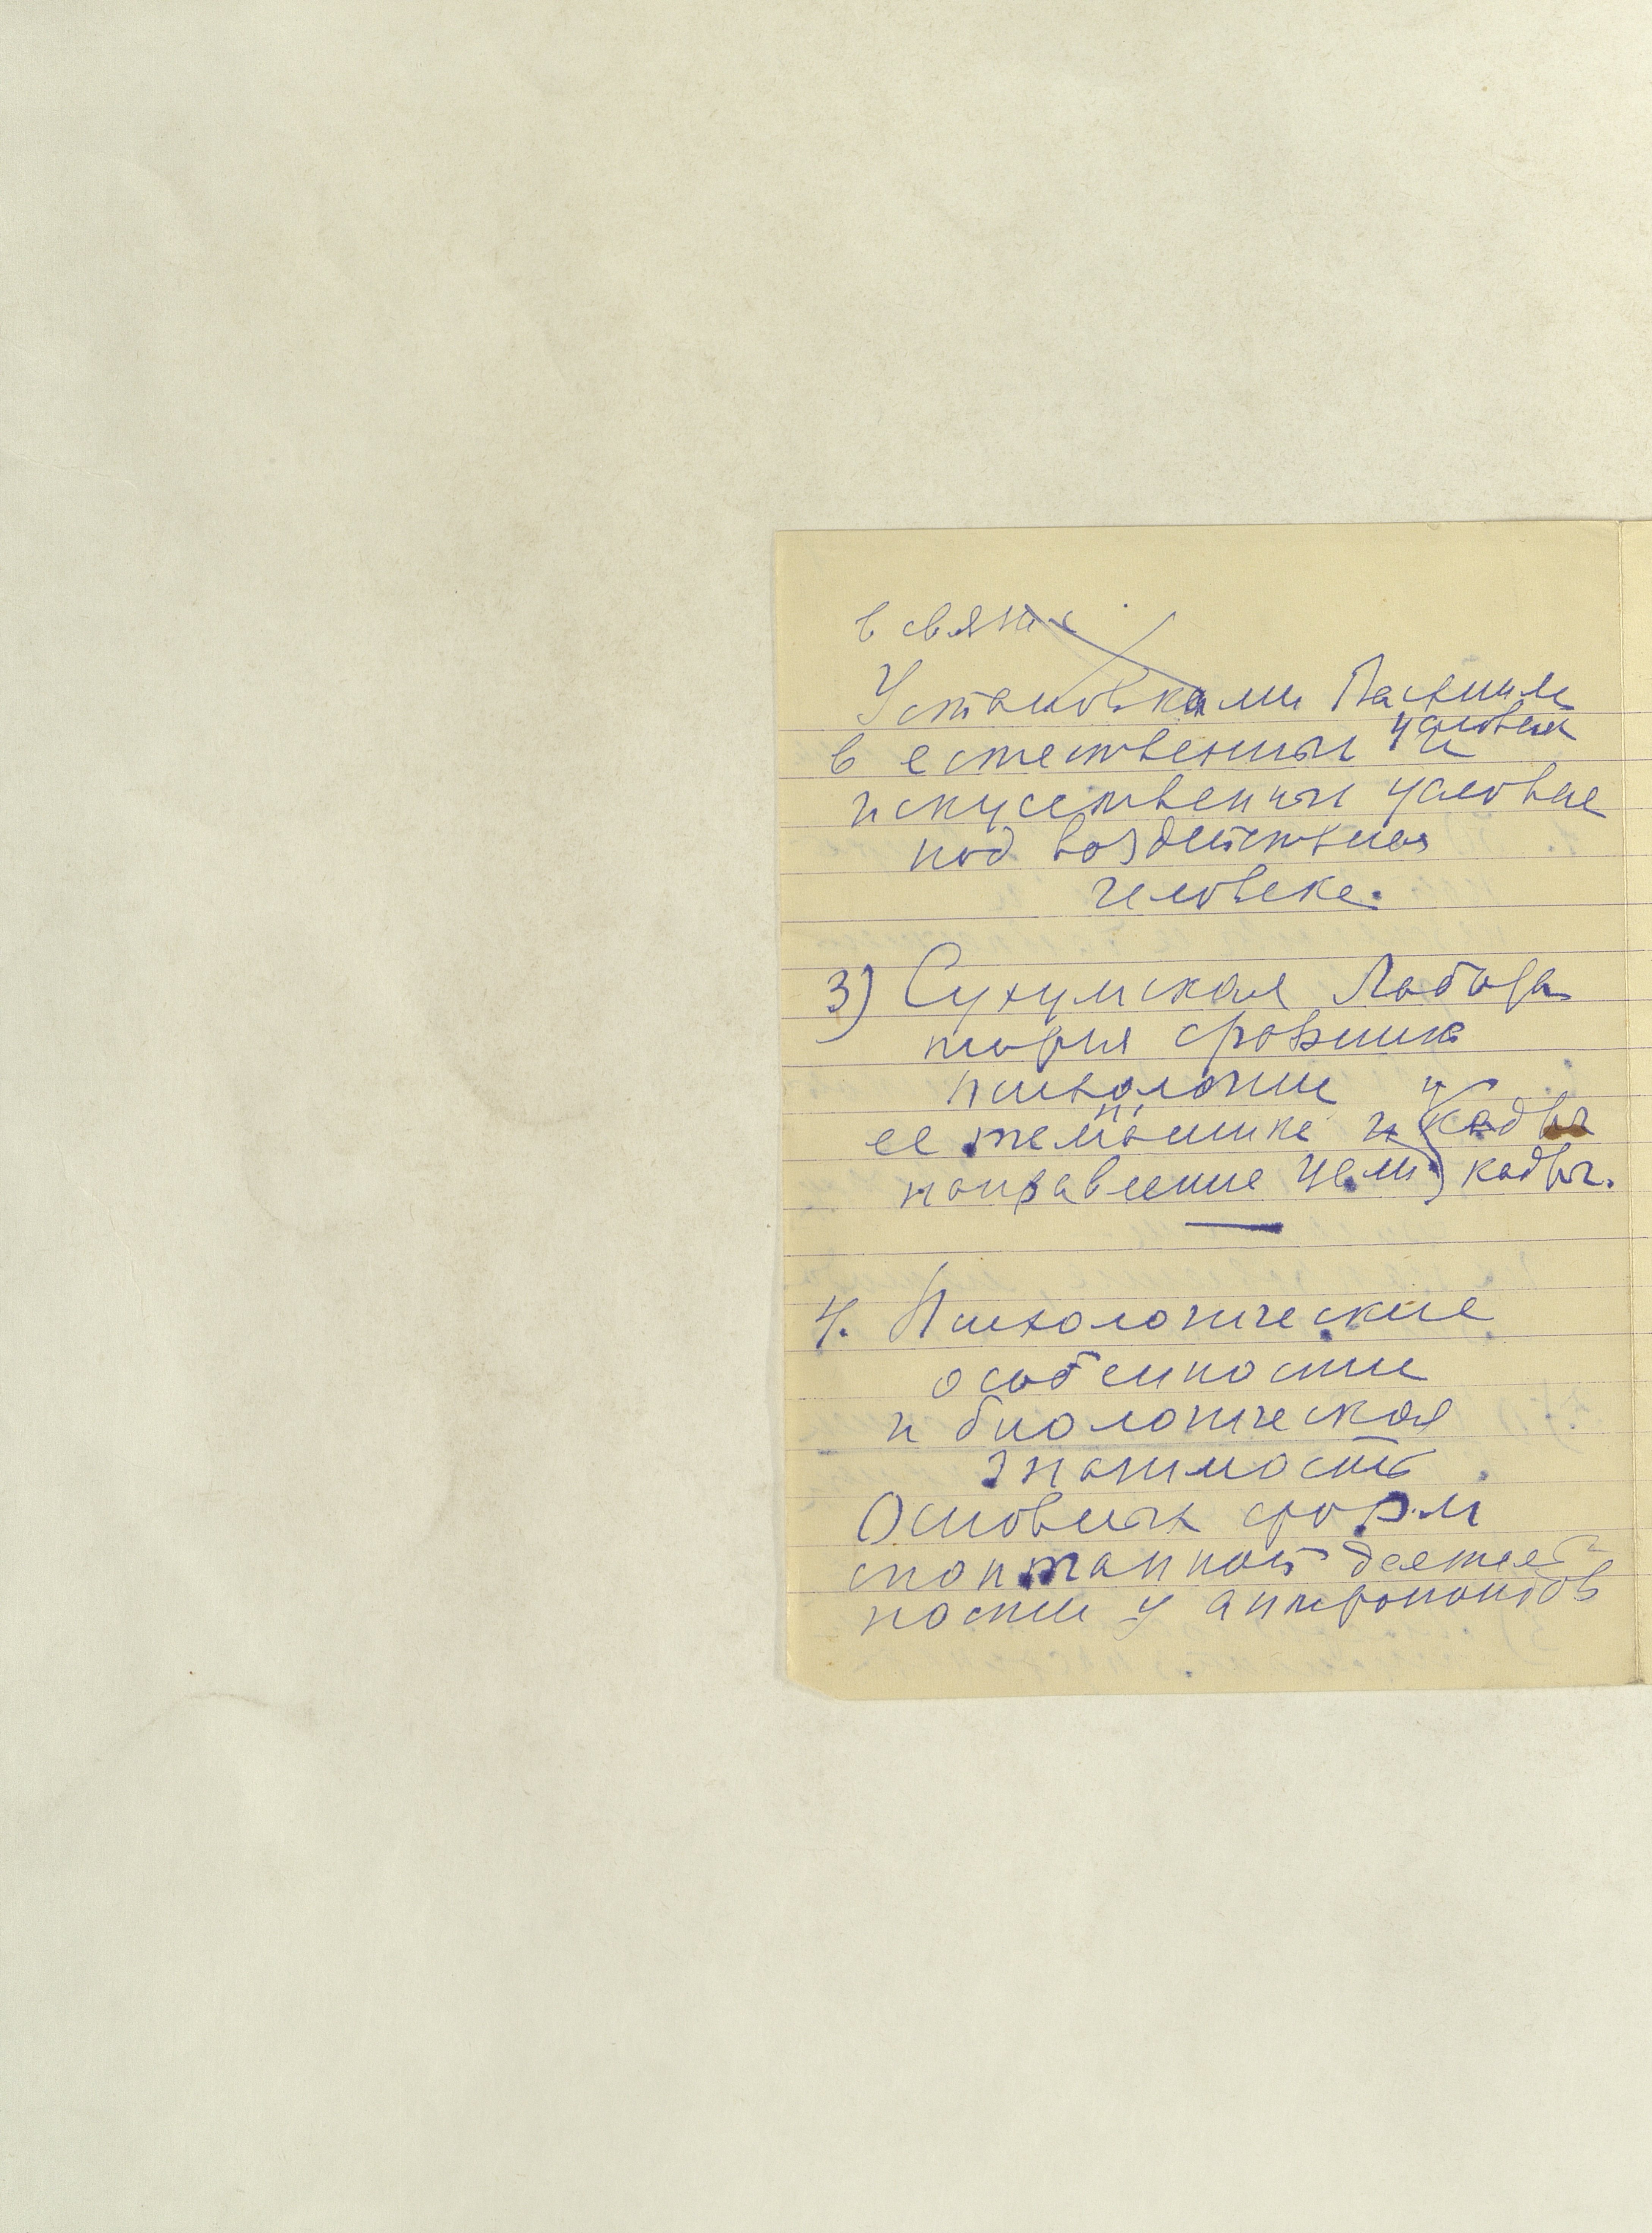 в связи с
Установками
в естественных условиях и
искусственных условиях
под воздействием
человека.
3) Сухумская Лабора
тория сравнит
психологии
ее тематика и кадры
направление цели кадры.
4. Психологические
особенности
и биологическая
значимость
Основных форм
спонтанной деятель
ности у антропоидов